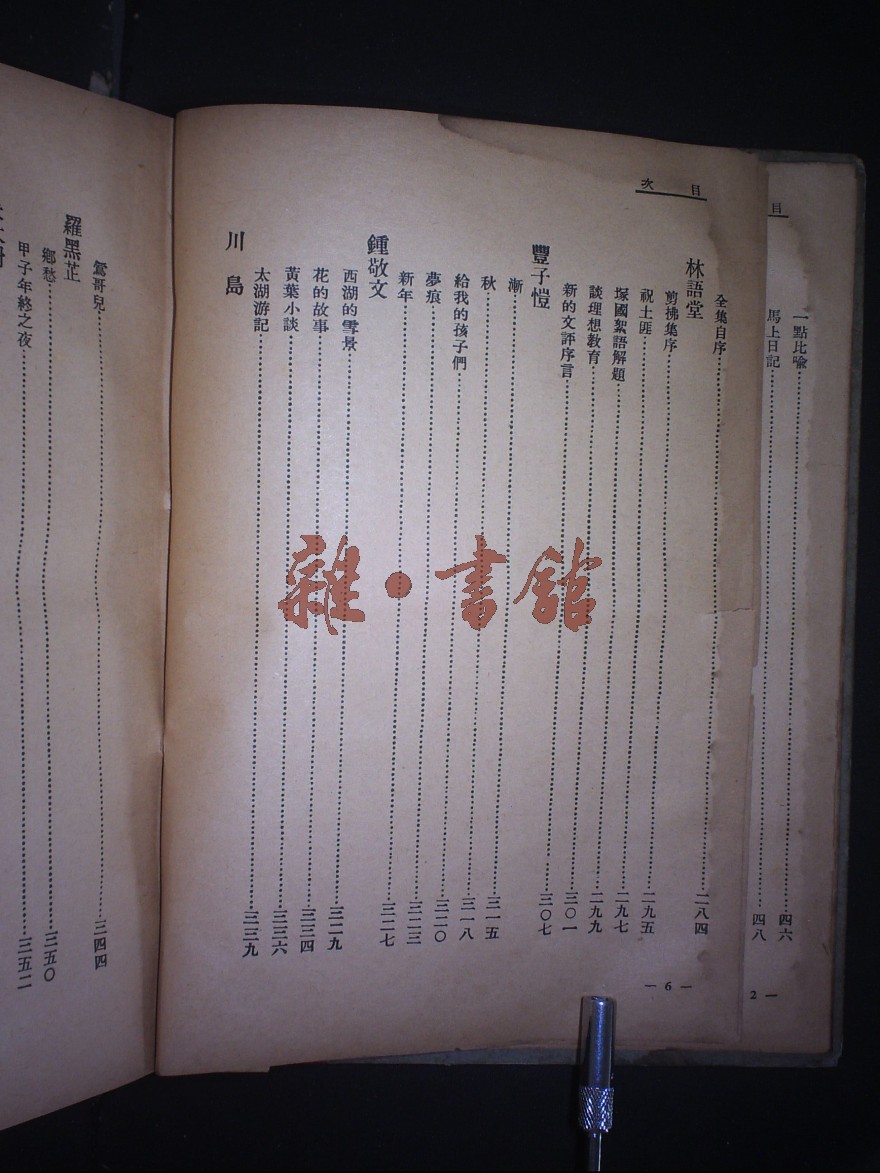 目
一點比喻……四六
馬上日記……四八
2 —
目次
全集自序……二八四
林語堂
剪拂集序……二九五
祝土匪……二九七
塚國絮語解題……二九九
談理想教育……三〇一
新的文評序言……三〇七
豐子愷
漸……三一五
秋……三一八
給我的孩子們……三二〇
夢痕……三二三
新年……三二七
鍾敬文
西湖的雪景……三二九
花的故事……三三四
黃葉小談……三三六
太湖游記……三三九
川島
— 6 —
鶯哥兒……三四四
羅黑芷
鄉愁……三五〇
甲子年終之夜……三五二
雜·書館